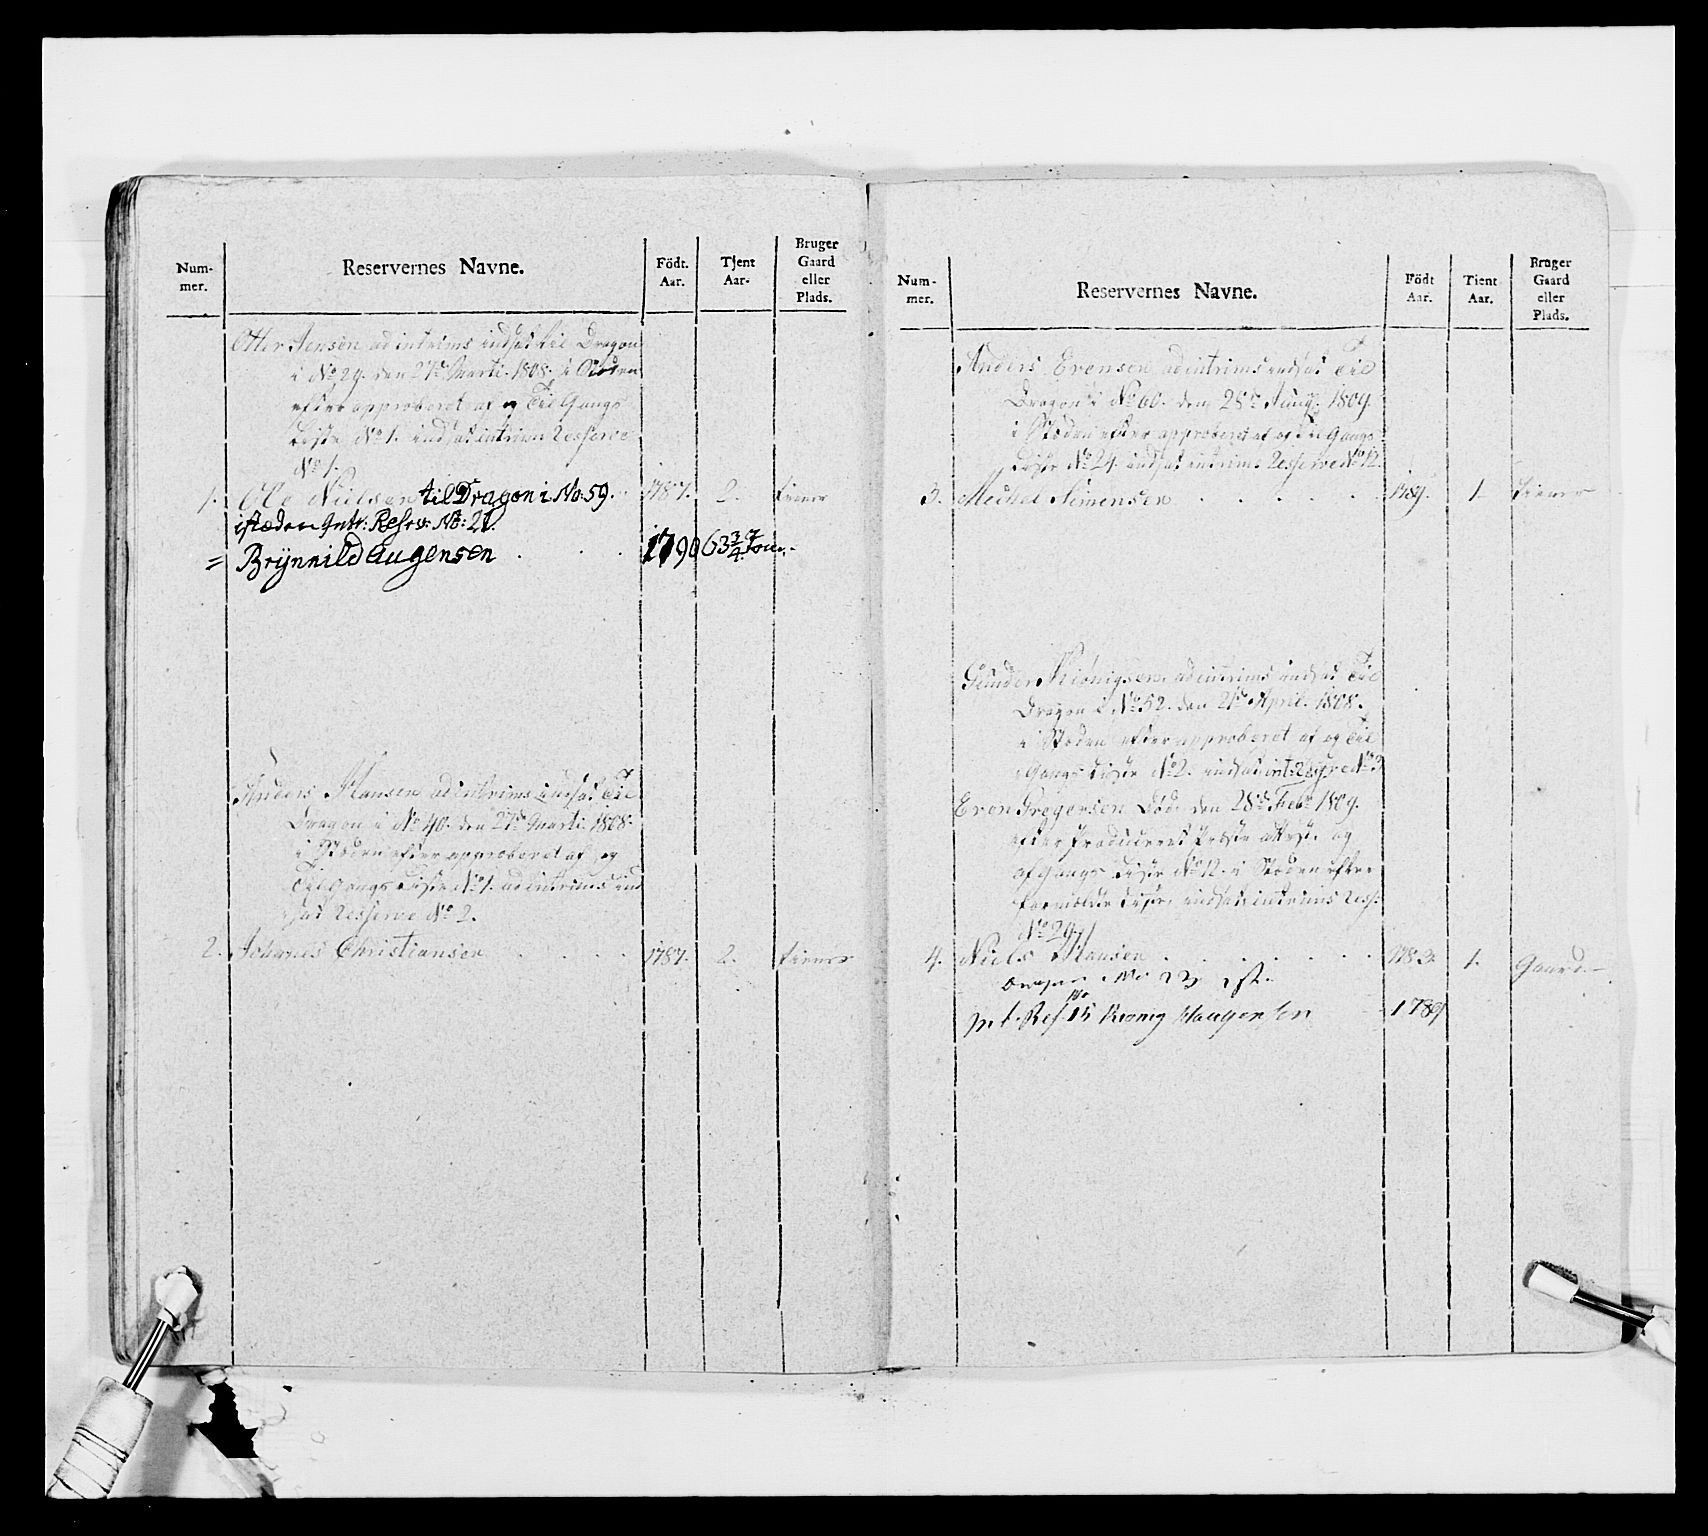 Num-
mer.
Reservernes Navne.
Födt.
Aar.
Tjent
Aar.
Bruger
Gaard
eller
Plads.
Otter Jensen ad intrims indsat til Dragon
i No 29. den 27de Marti. 1808. i Stæden
efter approberet af og Til Gangs
Liste No 1. indsat intrims Resserve
No 1.
1. Ole Nielsen til Dragon i No: 59. 1787. 2. tiener
istæden Intr: Reserv: No: 21.
= Brynnild Augensen 1790 63 3/4
Anders Hansen ad intrims indsat Til
Dragon i No 40. den 27de Marti 1808.
i Stæden efter approberet af og
Til Gangs Liste No 1. ad intrims ind
sat Resserve No 2.
2. Johannes Christiansen 1787. 2. tiener
Num-
mer.
Reservernes Navne.
Födt
Aar.
Tient
Aar.
Bruger
Gaard
eller
Plads.
Anders Evensen ad intrims indsat Til
Dragon i No 60. den 28de 1809.
i Stæden efter approberet af og Til Gangs
Liste No 24. indsat intrims Resserve No 12.
3. Michel Simensen 1789. 1. tiener
Gunder ad intrims indsat Til
Dragon i No 52. den 21de April. 1808.
i Stæden efter approberet af og Til
Gangs Liste No 2. indsat int: Resserve No 3
Even Gregersen Död den 28de Febr 1809.
efter Produceret Præste attest. og
afgangs Liste No 12. i Stæden efter
formeldte Liste, indsat intrims Ress:
No 29.
4. Niels Hansen 1783. 1. Gaard
Dragon No 23 ist.
Int. Res. No 15 Haagensen 1789